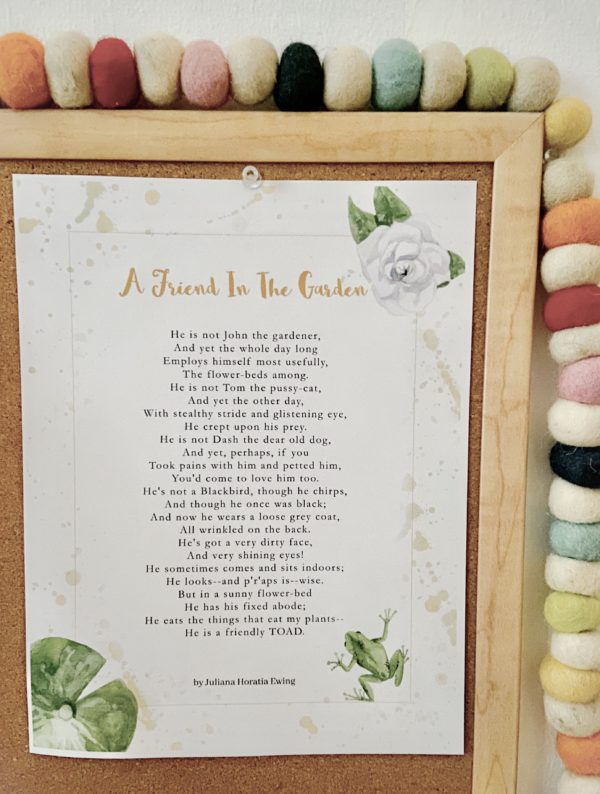 A Friend In The Garden
He is not John the gardener,
And yet the whole day long
Employs himself most usefully,
The flower-beds among.
He is not Tom the pussy-cat,
And yet the other day,
With stealthy stride and glistening eye,
He crept upon his prey.
He is not Dash the dear old dog,
And yet, perhaps, if you
Took pains with him and petted him,
You'd come to love him too.
He's not a Blackbird, though he chirps,
And though he once was black;
And now he wears a loose grey coat,
All wrinkled on the back.
He's got a very dirty face,
And very shining eyes!
He sometimes comes and sits indoors;
He looks--and p'r'aps is--wise.
But in a sunny flower-bed
He has his fixed abode;
He eats the things that eat my plants--
He is a friendly TOAD.
by Juliana Horatia Ewing